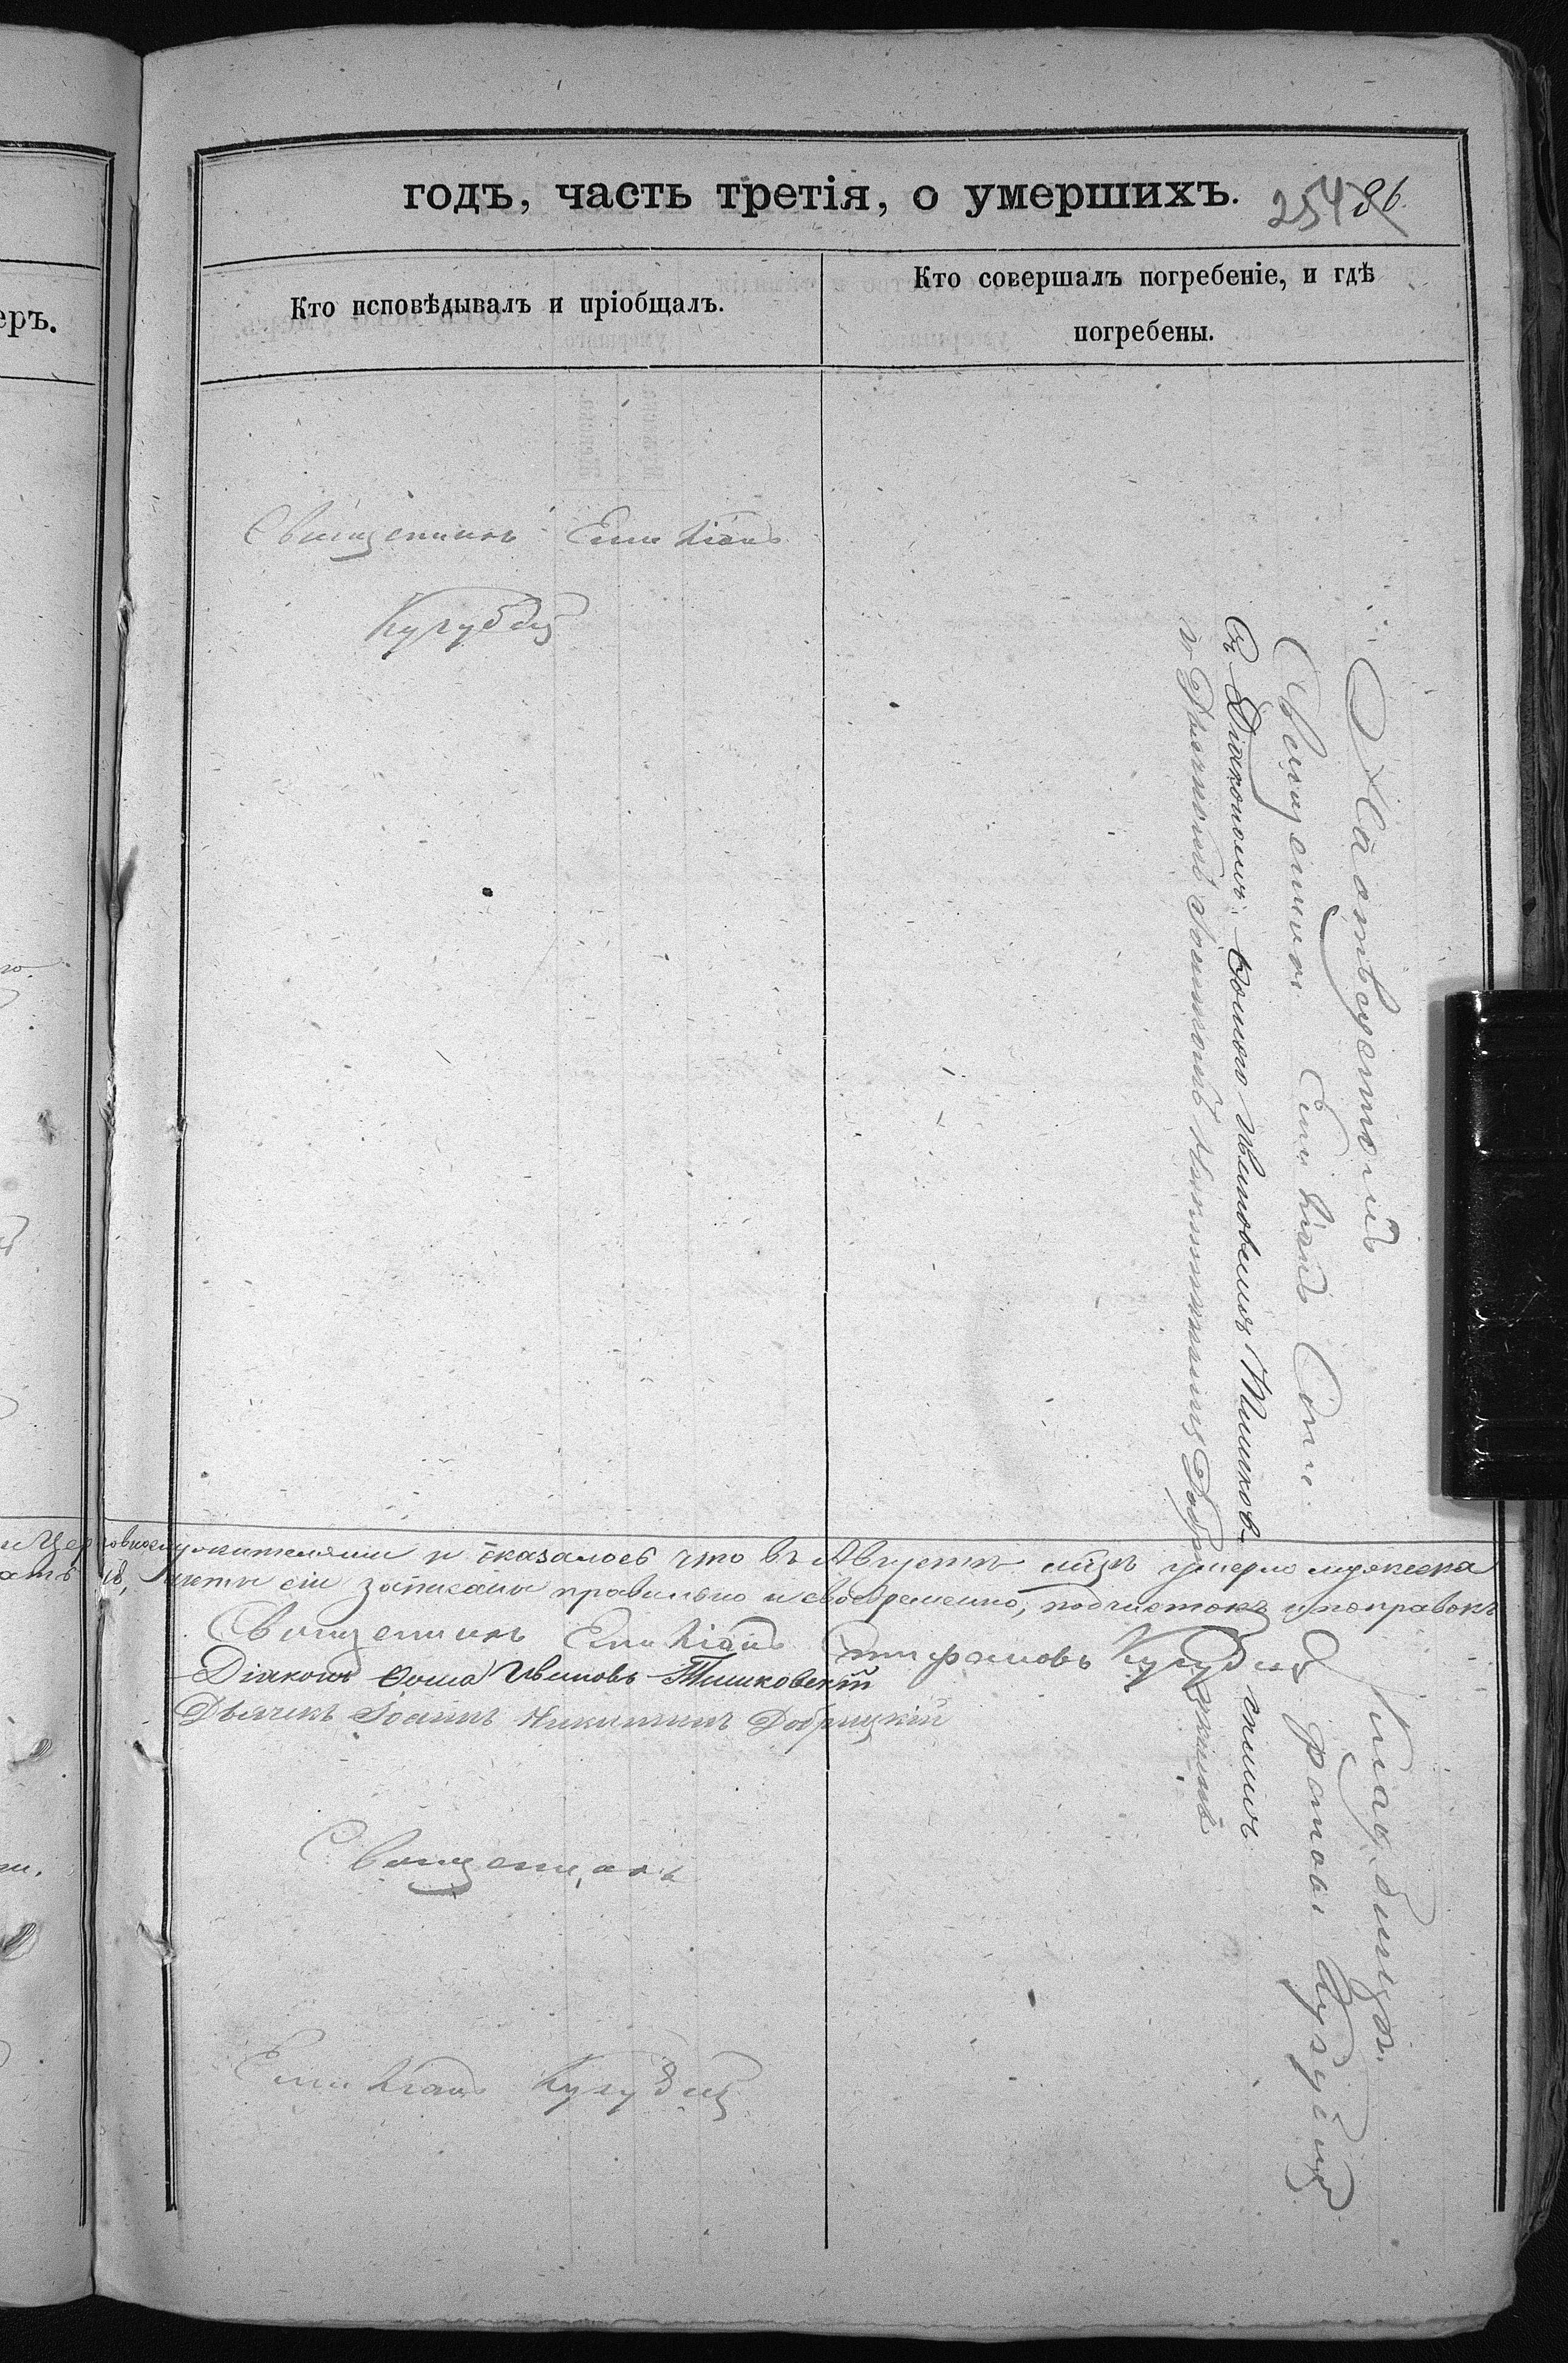 годъ, часть третія, о умершихъ.
254 86.
Кто исповѣдывалъ и пріобщалъ.
Кто совершалъ погребеніе, и гдѣ
погребены.
еръ.
Священникъ Емиліанъ
Кугубец
На отведенномъ Кладбищѣ.
Священникъ Емиліанъ Кугубец
Съ Діакономъ Ѳомою Ивановымъ Тишковскимъ
и Дьячкомъ Іоанномъ Никитинымъ Добрицкимъ
и оказалось что въ Августѣ мѣсѣ умерло мужеска
сіи записаны правильно и своевременно, подчистокъ и поправокъ
Священникъ Емиліанъ Стефановъ Кугубец
Діаконъ Ѳома Ивановъ Тишковскій
Дьячекъ Іоаннъ Никитинъ Добрицкій
Священникъ
Емиліанъ Кугубец